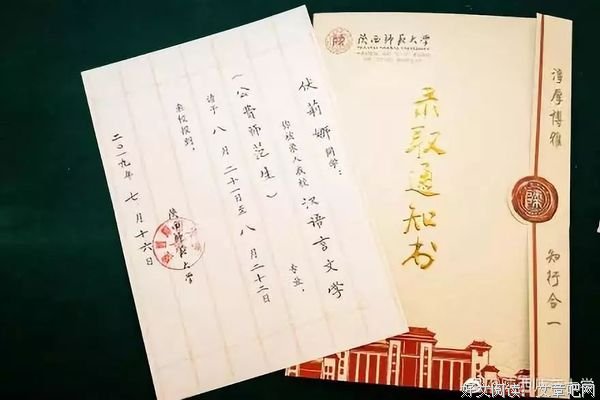 伏莉娜同学：
你被录入我校汉语言文学专业，
（公费师范生）
请于八月二十一日至八月二十二日
来校报到。
陕西师范大学
二〇一九年七月十六日
陕西师范大学
录取通知书
淳厚博雅
知行合一
好文阅读：文章吧网